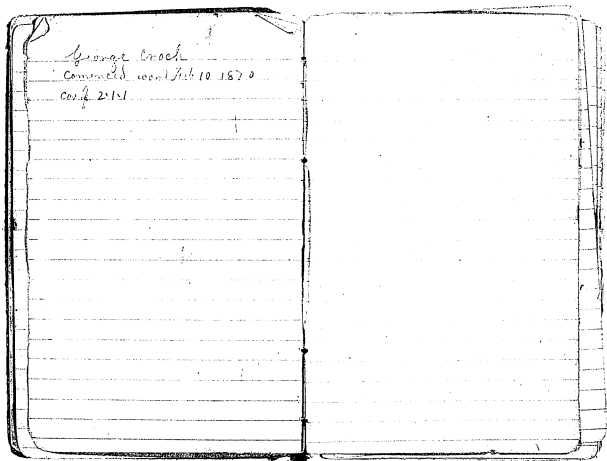 George Crock
Comenced work Feb 10 1870